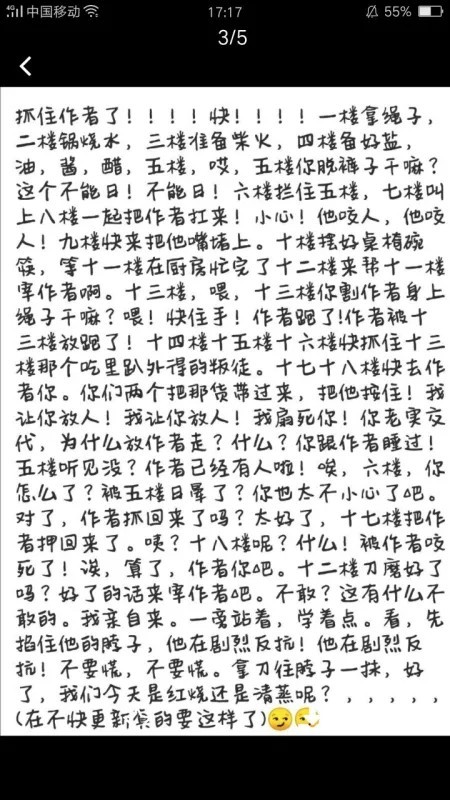 4G 中国移动 17:17 55%
3/5
抓住作者了！！！！快！！！！一楼拿绳子，
二楼锅烧水，三楼准备柴火，四楼备好盐，
油，酱，醋，五楼，哎，五楼你脱裤子干嘛？
这个不能日！不能日！六楼拦住五楼，七楼叫
上八楼一起把作者扛来！小心！他咬人，他咬
人！九楼快来把他嘴堵上。十楼摆好桌椅碗
筷，等十一楼在厨房忙完了十二楼来帮十一楼
宰作者啊。十三楼，喂，十三楼你割作者身上
绳子干嘛？喂！快住手！作者跑了!作者被十
三楼放跑了！十四楼十五楼十六楼快抓住十三
楼那个吃里趴外得的叛徒。十七十八楼快去作
者你。你们两个把那货带过来，把他按住！我
让你放人！我让你放人！我扇死你！你老实交
代，为什么放作者走？什么？你跟作者睡过！
五楼听见没？作者已经有人啦！唉，六楼，你
怎么了？被五楼日晕了？你也太不小心了吧。
对了，作者抓回来了吗？太好了，十七楼把作
者押回来了。咦？十八楼呢？什么！被作者咬
死了！诶，算了，作者你吧。十二楼刀磨好了
吗？好了的话来宰作者吧。不敢？这有什么不
敢的。我亲自来。一旁站着，学着点。看，先
掐住他的脖子，他在剧烈反抗！他在剧烈反
抗！不要慌，不要慌。拿刀往脖子一抹，好
了，我们今天是红烧还是清蒸呢？，，，，，
(在不快更新真的要这样了)